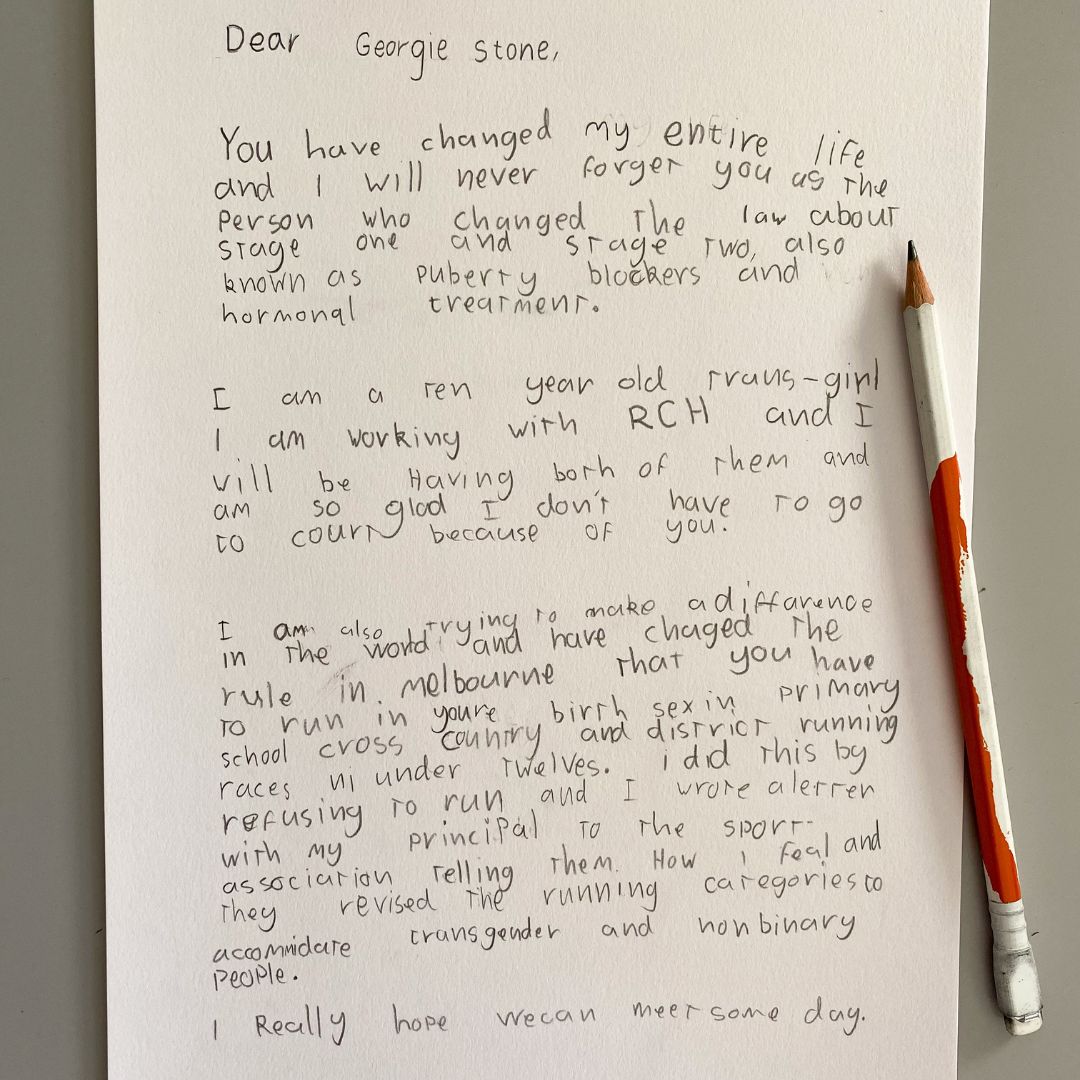 Dear Georgie Stone,
You have changed my entire life
and I will never forget you as the
person who changed the law about
stage one and stage two, also
known as puberty blockers and
hormonal treatment.
I am a ten year old trans-girl
I am working with RCH and I
will be Having both of them and
am so glad I don't have to go
to court because of you.
I am also trying to make a difference
in the world and have chaged the
rule in melbourne that you have
to run in youre birth sex in primary
school cross country and district running
races in under twelves. i did this by
refusing to run and I wrote a letter
with my principal to the sport-
association telling them. How I feal and
they revised the running categories to
accommidate transgender and nonbinary
people.
I Really hope we can meet some day.